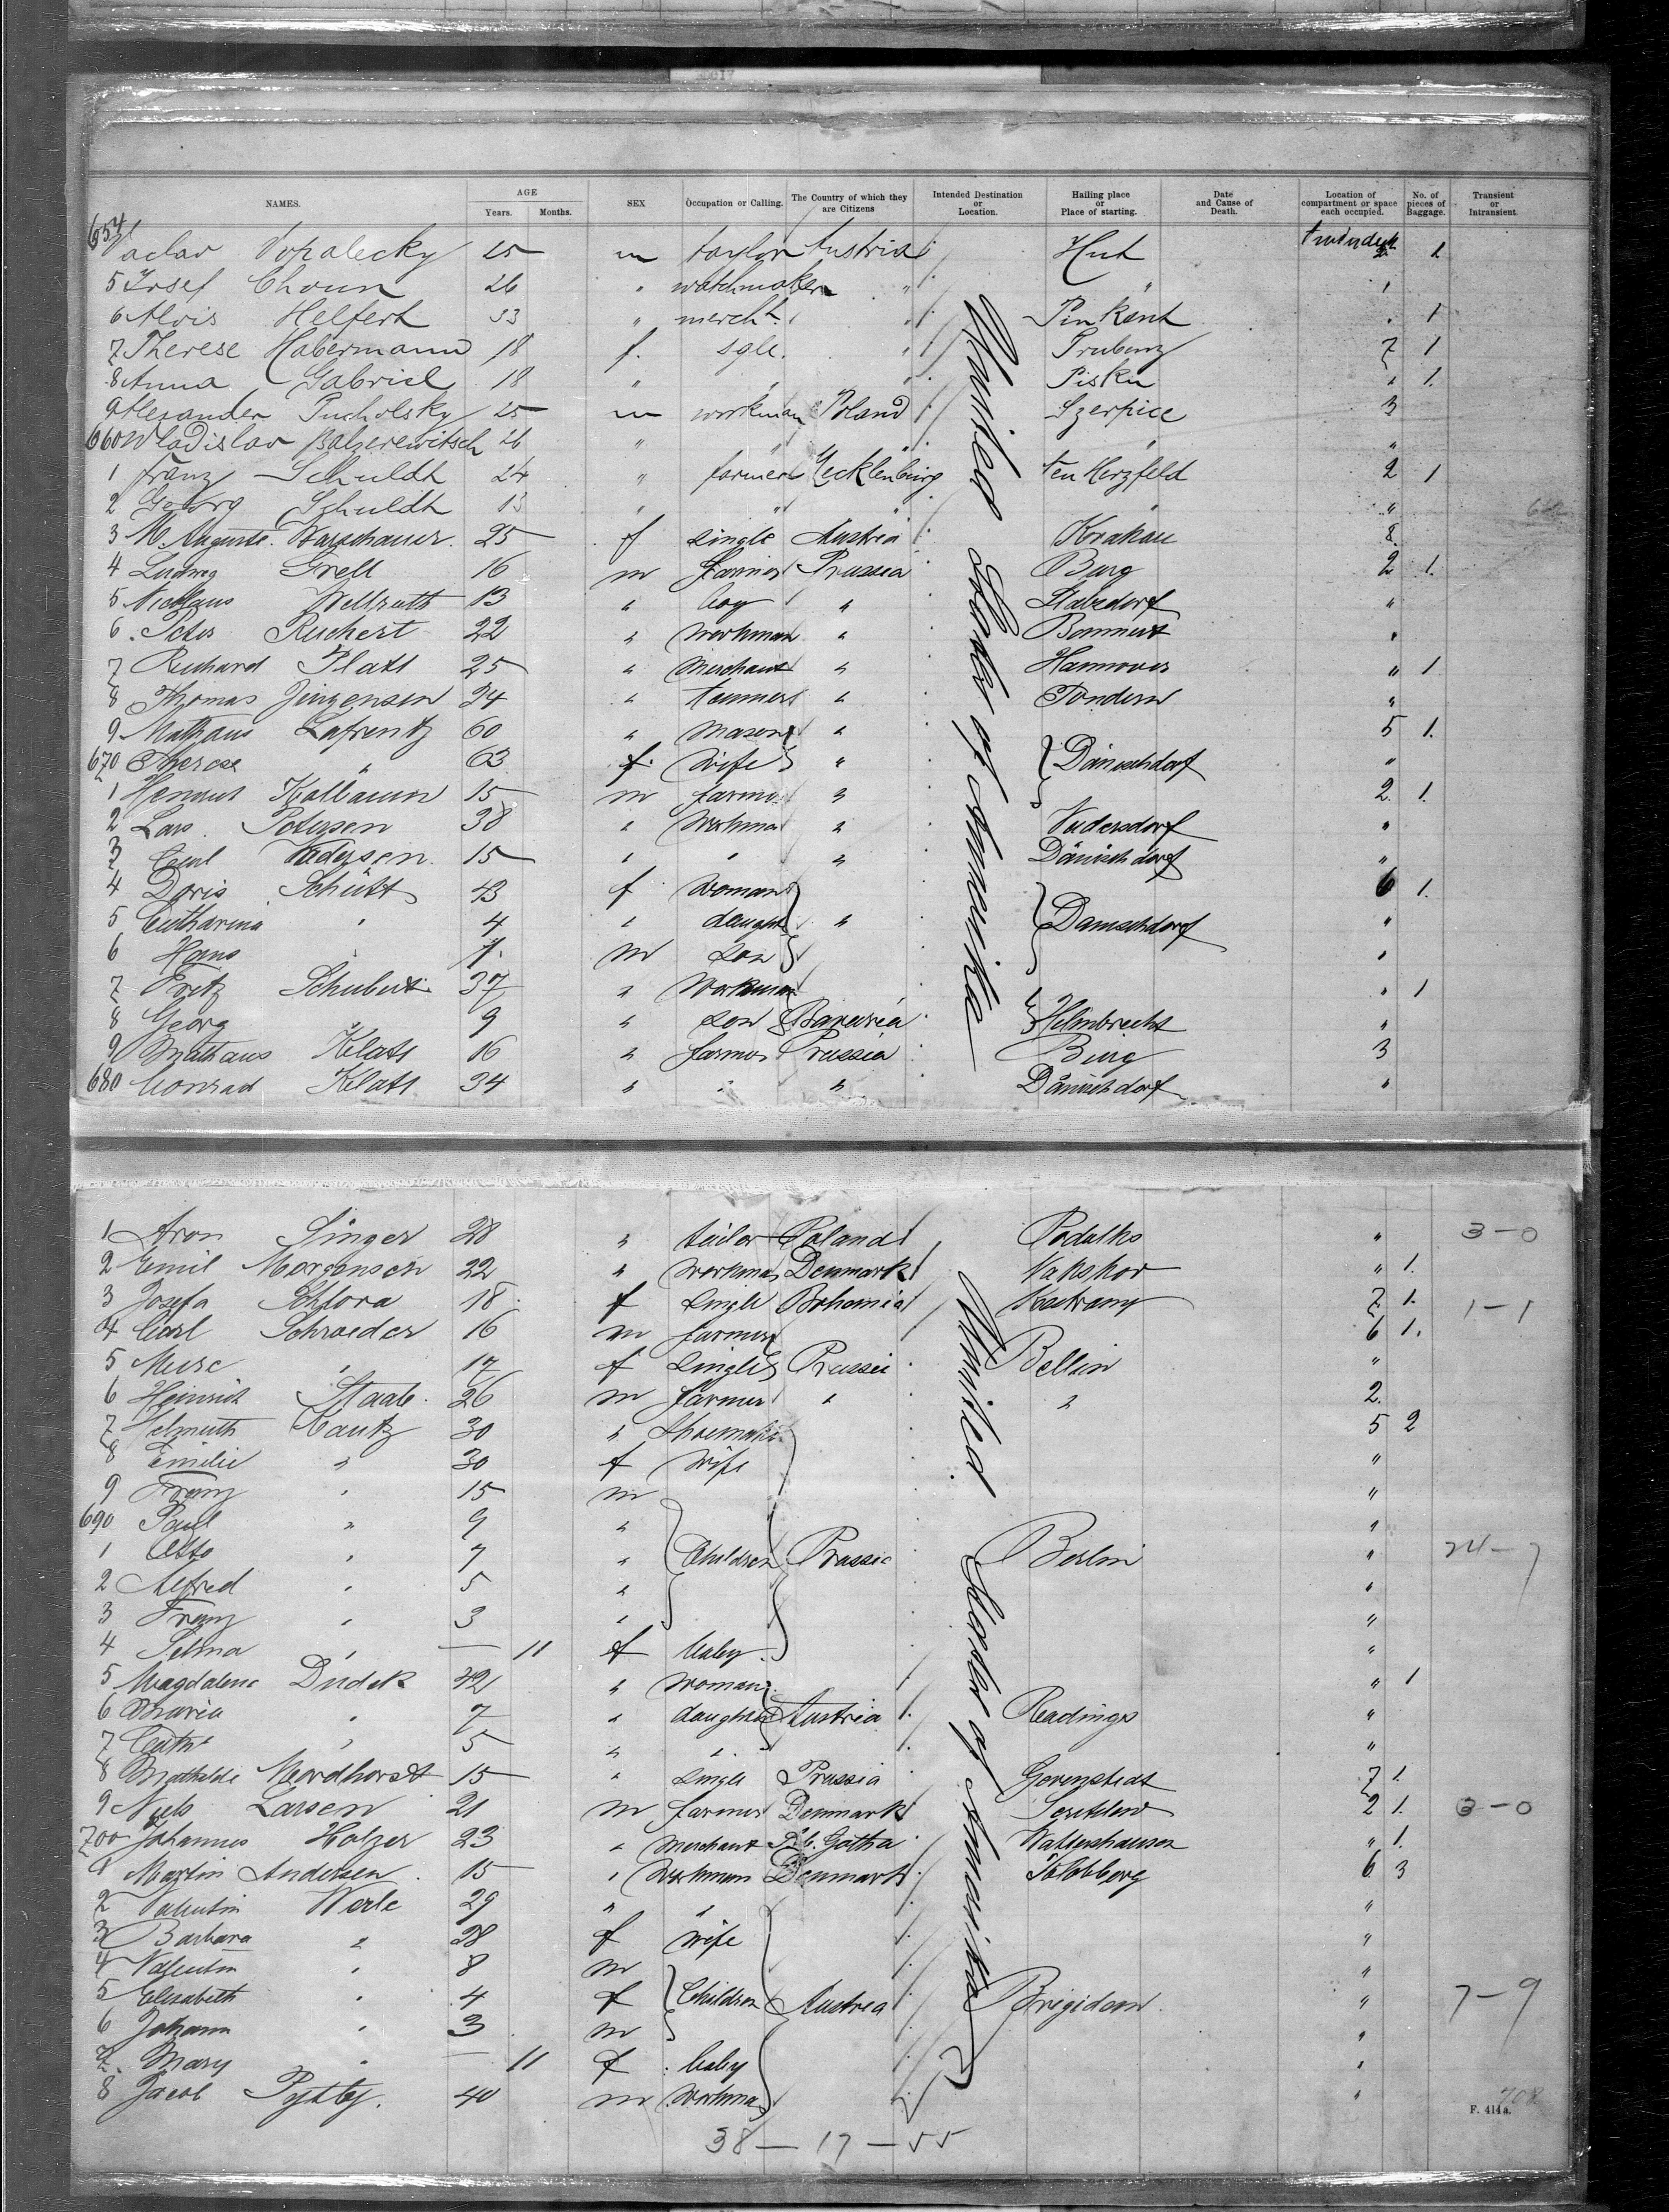 NAMES. AGE Years. Months. SEX Occupation or Calling. The Country of which they are Citizens Intended Destination or Location. Hailing place or Place of starting. Date and Cause of Death. Location of compartment or space each occupied. No. of pieces of Baggage. Transient or Intransient.
654 Vaclav Vopalecky 25 m taylor Austria Hut 1
5 Josef Choun 26 " watchmaker " "
6 Alois Helfert 33 " mercht. " 1
7 Therese Habermann 18 f. sgle. " 7 1
8 Anna Gabriel 18 " " " Pisku " 1.
9 Alexander Pucholsky 25 m workman Poland Szerpice 3
660 Wladislav Balzerewitsch 26 " " " " "
1 Franz Schuldt 24 " farmer Mecklenburg 2 1
2 Georg Schuldt 13 " " " " "
3 M. Auguste Warschauer. 25 f single Austria Krakau 8.
4 Ludwig Grell 16 m farmer Prussia Burg 2 1.
5 Nicolaus 13 " boy " "
6. Peter Reichert 22 " Workman " "
7 Richard Platt 25 " Merchant " Hannover " 1
8 Thomas Jürgensen 24 " " Tondern "
9 Mathaus Lafrentz 60 " Mason " 5 1.
670 Therese " 63 f. Wife " Dänschdorf "
1 Kollbaum 15 m farmer " 2. 1.
2 Lars Petersen 38 " Workman " "
3 Carl 15 " " " Dänischdorf "
4 Doris Schütt 43 f Woman 6 1.
5 Catharina " 4 " daught " Damschdorf "
6 Hans " m Son "
7 Fritz Schubert 37 " Workman " 1
8 Georg " 9 " Son Bavaria Helmbrecht "
9 Mathaus Klatt 16 " farmer Prussia Burg 3
680 Conrad Klatt 34 " " " Dänischdorf "
United States of Amerika
1 Aron Singer 28 " tailor Poland " 3-0
2 Emil Morgensen 22 " Workman Denmark Nakskov " 1.
3 Josefa 18 f Single Bohemia 7 1. 1-1
4 Carl Schroeder 16 m farmer 6 1.
5 " 17 f Single Prussia Bellin "
6 Heinrich Staab 26 m farmer " " 2.
7 Helmuth Kautz 30 " Shoemaker 5 2
8 Emilie " 30 f Wife "
9 Franz " 15 m "
690 Paul " 9 " "
1 Otto " 7 " Children Prussia Berlin " 24-7
2 Alfred " 5 " "
3 Franz " 3 " "
4 Selma " — 11 f baby. "
5 Magdalena Dudek 42 " Woman " 1
6 Maria " 7 " daughter Austria Readings "
7 Cath. " 5 " " "
8 Mathilde Mordhorst 15 " Single Prussia 7 1.
9 Niels Larsen 21 m farmer Denmark 2 1. 3-0
700 Johannes Holzer 23 " Merchant Gotha Waltershausen " 1.
1 Martin Andersen 15 " Workman Denmark 6 3
2 Valentin Werle 29 " " "
3 Barbara " 28 f Wife "
4 Valentin " 8 m "
5 Elisabeth " 4 f Children Austria Brigidau " 7-9
6 Johann " 3 m "
7. Mary " — 11 f baby "
8 Jacob 40 m Workman "
United States of Amerika
708
F. 414 a.
38 — 17 — 55